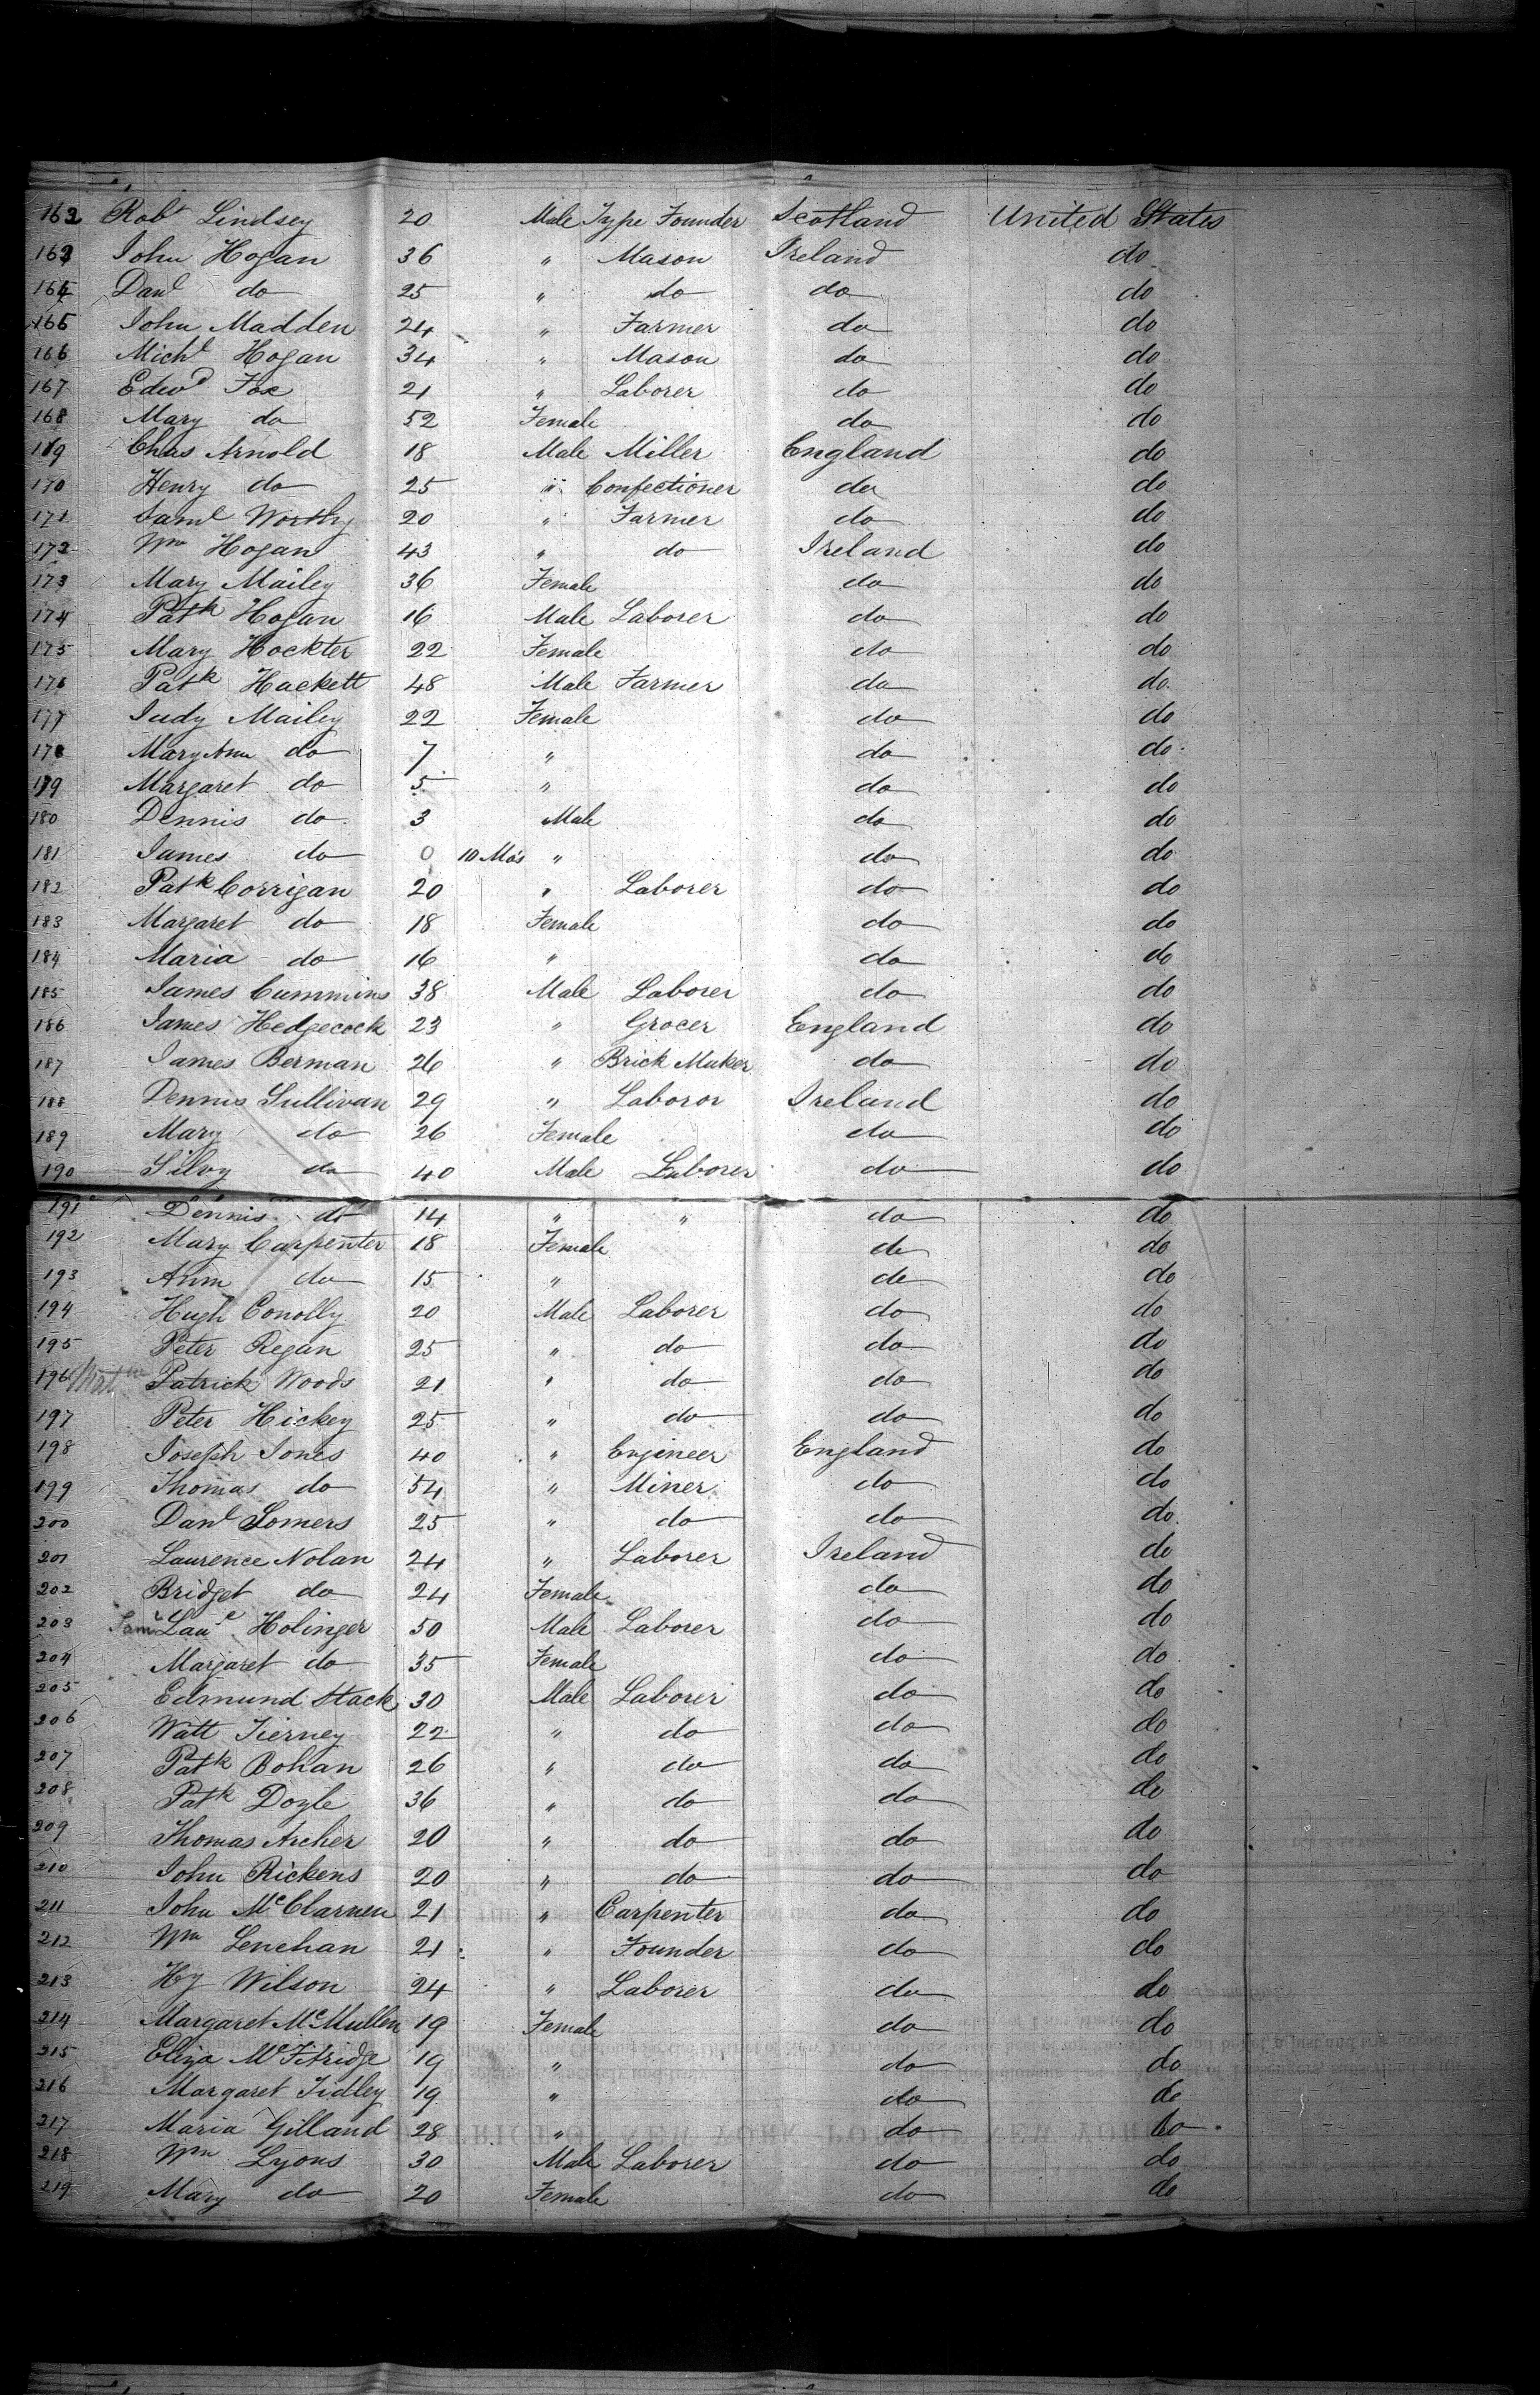 162 Robt Lindsey 20 Male Type Founder Scotland United States
163 John Hogan 36 " Mason Ireland do
164 Danl do 25 " do do do
165 John Madden 24 " Farmer do do
166 Michl Hogan 34 " Mason do do
167 Edwd Fox 21 " Laborer do do
168 Mary do 52 Female do do
169 Chas Arnold 18 Male Miller England do
170 Henry do 25 " Confectioner do do
171 Saml Worthy 20 " Farmer do do
172 Wm Hogan 43 " do Ireland do
173 Mary Mailey 36 Female do do
174 Patk Hogan 16 Male Laborer do do
175 Mary Hockter 22 Female do do
176 Patk Hackett 48 Male Farmer do do
177 Judy Mailey 22 Female do do
178 Mary Ann do 7 " do do
179 Margaret do 5 " do do
180 Dennis do 3 " Male do do
181 James do 0 10 Mos " do do
182 Patk Corrigan 20 " Laborer do do
183 Margaret do 18 Female do do
184 Maria do 16 " do do
185 James Cummins 38 Male Laborer do do
186 James Hedgecock 23 " Grocer England do
187 James Berman 26 " Brick Maker do do
188 Dennis Sullivan 29 " Laboror Ireland do
189 Mary do 26 Female do do
190 Silvy do 40 Male Laborer do do
191 Dennis do 14 " " do do
192 Mary Carpenter 18 Female do do
193 Ann do 15 " do do
194 Hugh Conolly 20 Male Laborer do do
195 Peter Regan 25 " do do do
196 Patrick Woods 21 " do do do
197 Peter Hickey 25 " do do do
198 Joseph Jones 40 " Engineer England do
199 Thomas do 54 " Miner do do
200 Danl Somers 25 " do do do
201 Laurence Nolan 24 " Laborer Ireland do
202 Bridget do 24 Female do do
203 Laue Holinger 50 Male Laborer do do
204 Margaret do 35 Female do do
205 Edmund Stack 30 Male Laborer do do
206 Watt Tierney 22 " do do do
207 Patk Bohan 26 " do do do
208 Patk Doyle 36 " do do do
209 Thomas Archer 20 " do do do
210 John Rickens 20 " do do do
211 John McClarnen 21 " Carpenter do do
212 Wm Lenehan 21 " Founder do do
213 Hy Wilson 24 " Laborer do do
214 Margaret McMullen 19 Female do do
215 Eliza McFitridge 19 " do do
216 Margaret Tidley 19 " do do
217 Maria Gilland 28 " do do
218 Wm Lyons 30 Male Laborer do do
219 Mary do 20 Female do do